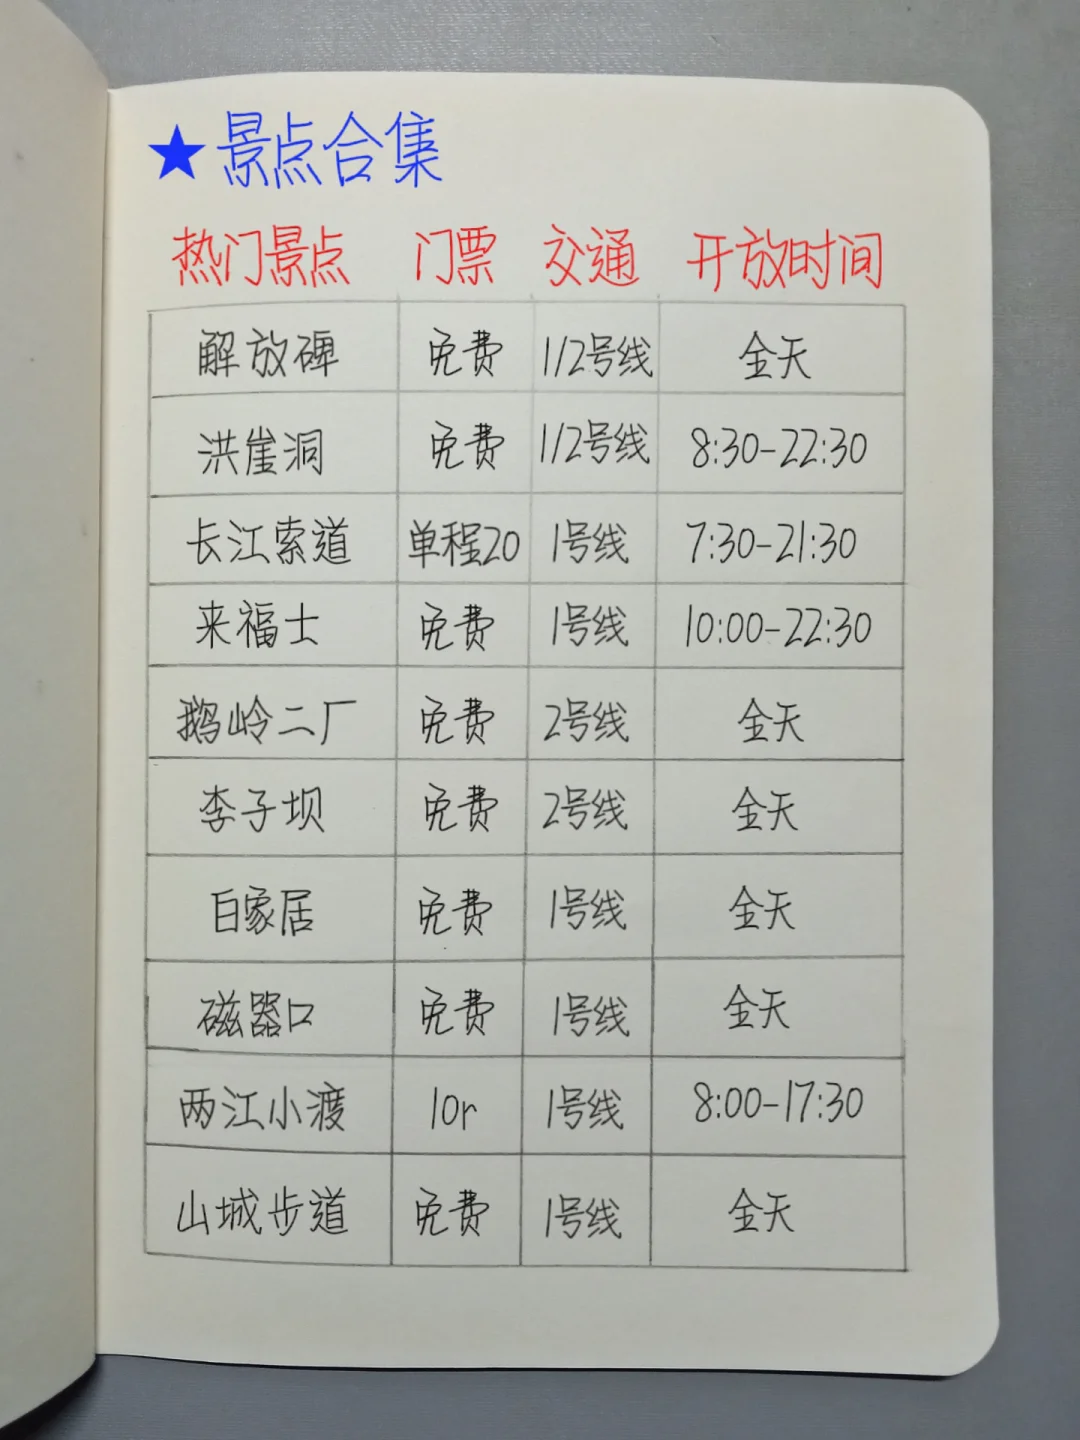 ★景点合集
热门景点 门票 交通 开放时间
解放碑 免费 1/2号线 全天
洪崖洞 免费 1/2号线 8:30-22:30
长江索道 单程20 1号线 7:30-21:30
来福士 免费 1号线 10:00-22:30
鹅岭二厂 免费 2号线 全天
李子坝 免费 2号线 全天
白象居 免费 1号线 全天
磁器口 免费 1号线 全天
两江小渡 10r 1号线 8:00-17:30
山城步道 免费 1号线 全天